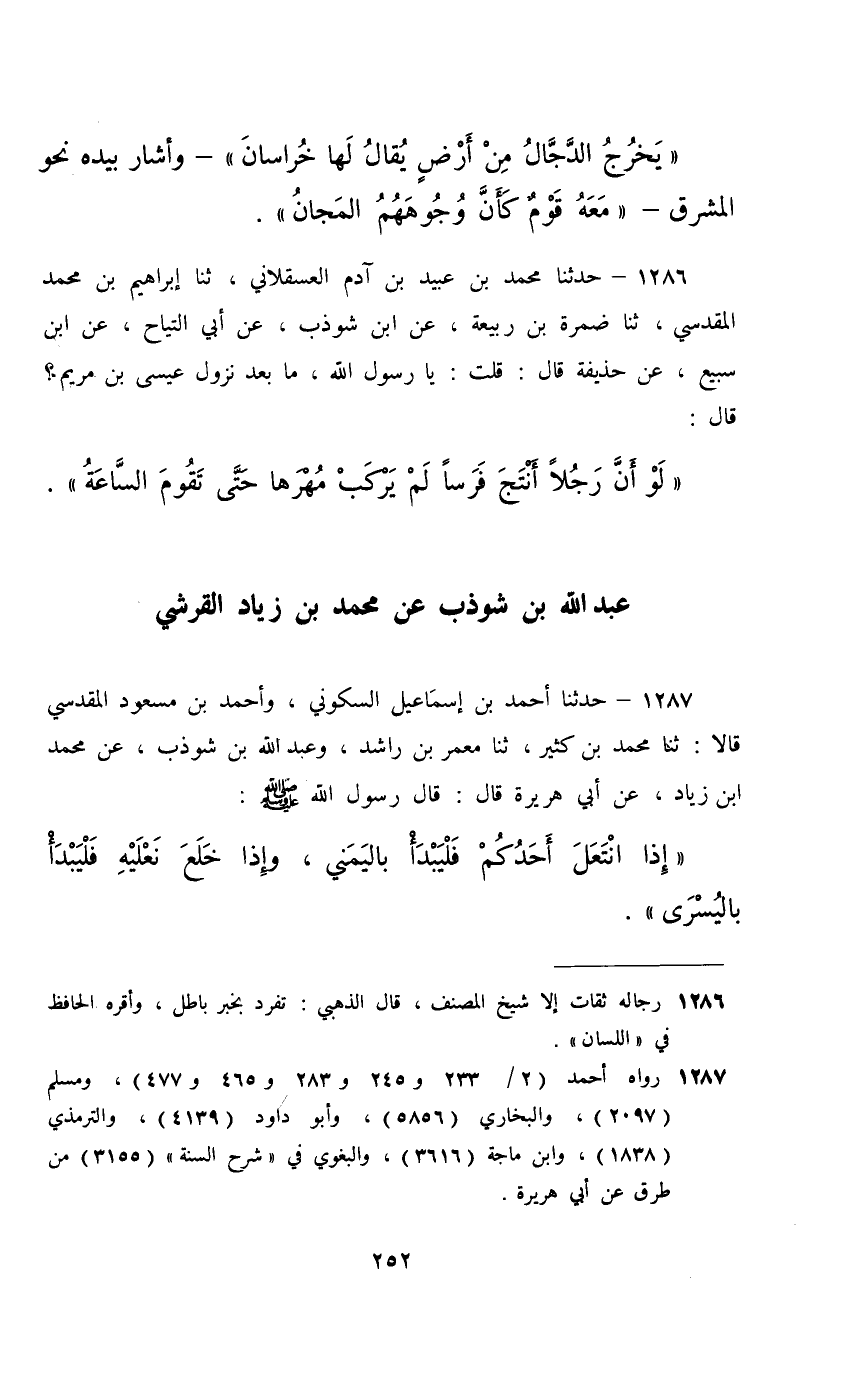 « يَخرُجُ الدَّجَّالُ مِنْ أَرْضٍ يُقالُ لَها خُراسانَ » – وأشار بيده نحو
المشرق – « مَعَهُ قَوْمٌ كَأَنَّ وُجُوهَهُمُ المَجانُ » .
١٢٨٦ – حدثنا محمد بن عبيد بن آدم العسقلاني ، ثنا إبراهيم بن محمد
المقدسي ، ثنا ضمرة بن ربيعة ، عن ابن شوذب ، عن أبي التياح ، عن ابن
سبيع ، عن حذيفة قال : قلت : يا رسول الله ، ما بعد نزول عيسى بن مريم؟
قال :
« لَوْ أَنَّ رَجُلاً أَنْتَجَ فَرَساً لَمْ يَرْكَبْ مُهْرَها حَتَّى تَقُومَ السَّاعَةُ » .
عبد الله بن شوذب عن محمد بن زياد القرشي
١٢٨٧ – حدثنا أحمد بن إسمَاعيل السكوني ، وأحمد بن مسعود المقدسي
قالا : ثنا محمد بن كثير ، ثنا معمر بن راشد ، وعبد الله بن شوذب ، عن محمد
ابن زياد ، عن أبي هريرة قال : قال رسول الله ﷺ :
« إِذا انْتَعَلَ أَحَدُكُمْ فَلْيَبْدَأْ باليَمَني ، وإِذا خَلَعَ نَعْلَيْهِ فَلْيَبْدَأْ
باليُسْرَى » .
١٢٨٦ رجاله ثقات إلا شيخ المصنف ، قال الذهبي : تفرد بخبر باطل ، وأقره الحافظ
في «اللسان» .
١٢٨٧ رواه أحمد (٢/ ٢٣٣ و ٢٤٥ و ٢٨٣ و ٤٦٥ و ٤٧٧) ، ومسلم
(٢٠٩٧) ، والبخاري (٥٨٥٦) ، وأبو داود (٤١٣٩) ، والترمذي
(١٨٣٨) ، وابن ماجة (٣٦١٦) ، والبغوي في «شرح السنة» (٣١٥٥) من
طرق عن أبي هريرة .
٢٥٢